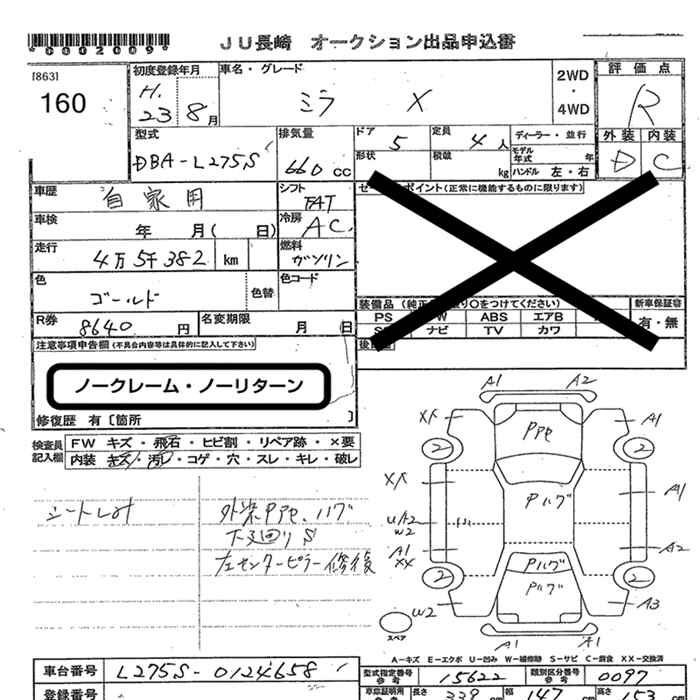 *0002009*
JU長崎 オークション出品申込書
[863]
160
初度登録年月
H.
23 8月
車名・グレード
ミラ X
2WD
・
4WD
評価点
R
外装 内装
D C
型式
DBA-L275S
排気量
660 cc
ドア 5
定員 4人
形状
積載 kg
ディーラー・並行
モデル年式 年
ハンドル 左・右
車歴 自家用
シフト FAT
車検 年 月( 日)
冷房 AC
走行 4万5千382 km
燃料 ガソリン
色 ゴールド
色替
色コード
R券 8640 円
名変期限 月 (日
セールスポイント(正常に機能するものに限ります)
装備品(純正 り○をつけてください)
PS W ABS エアB
ナビ TV カワ
新車保証書
有・無
後
注意事項申告欄(不具合内容等は具体的に記入して下さい)
ノークレーム・ノーリターン
修復歴 有〔箇所 〕
検査員記入欄
FW キズ・飛石・ヒビ割・リペア跡・×要
内装 キズ・汚レ・コゲ・穴・スレ・キレ・破レ
外装PPe.ハゲ
下廻りS
左センターピラー修後
A1 A2
XX PPe A1
2 2
XX Pハゲ A1
UA2
W2
A1 A2
XX
Pハゲ
2 Pハゲ 2
W2 A3
スペア A1 A1
A-キズ E-エクボ U-凹み W-補修跡 S-サビ C-腐食 XX-交換済
車台番号 L275S-0124658
型式指定番号 15622
類別区分番号 0097
登録番号
車車証明用 長さ 339 幅 147 高さ 153